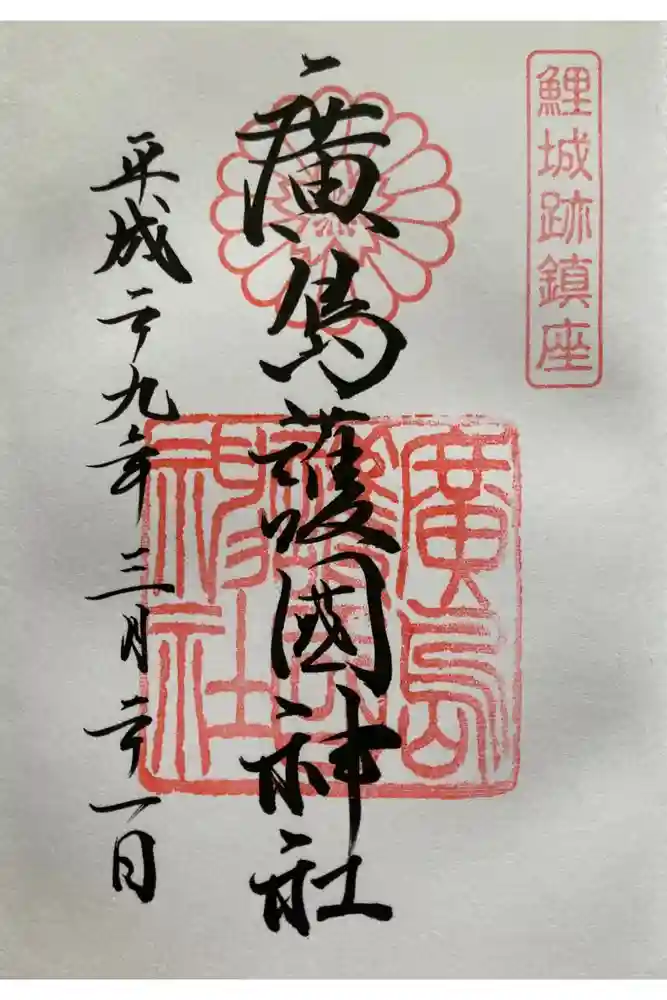 鯉城跡鎮座
廣島護國神社
廣島
護國
神社
平成二十九年三月二十一日